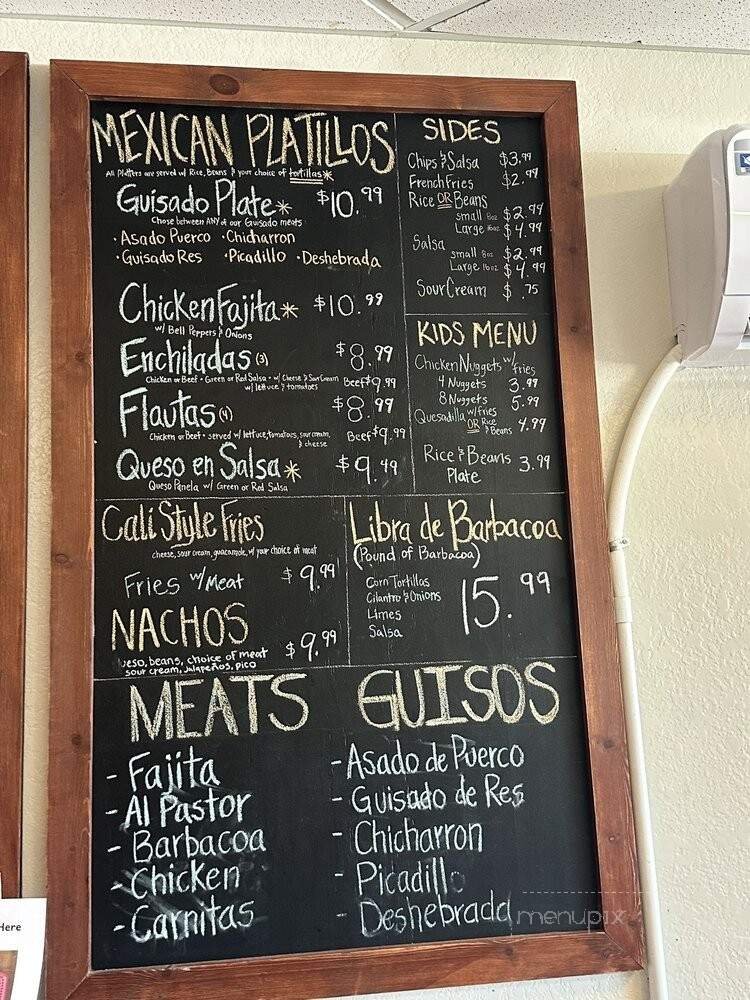 MEXICAN PLATILLOS
All Platters are served w/ Rice, Beans & your choice of tortillas*
Guisado Plate* $10.99
Chose between ANY of our Guisado meats
· Asado Puerco · Chicharron
· Guisado Res · Picadillo · Deshebrada
Chicken Fajita* $10.99
w/ Bell Peppers & Onions
Enchiladas (3) $8.99
Chicken or Beef - Green or Red Salsa - w/ Cheese & Sour Cream Beef $9.99
w/ lettuce & tomatoes
Flautas (4) $8.99
Chicken or Beef - served w/ lettuce, tomatoes, sour cream, Beef $9.99
& cheese
Queso en Salsa* $9.49
Queso Panela w/ Green or Red Salsa
SIDES
Chips & Salsa $3.99
French Fries $2.99
Rice OR Beans
small 8oz $2.99
Large 16oz $4.99
Salsa
small 8oz $2.99
Large 16oz $4.99
Sour Cream $.75
KIDS MENU
Chicken Nuggets w/ fries
4 Nuggets 3.99
8 Nuggets 5.99
Quesadilla w/ fries 4.99
OR Rice & Beans
Rice & Beans 3.99
Plate
Cali Style Fries
cheese, sour cream, guacamole, w/ your choice of meat
Fries w/ Meat $9.99
NACHOS $9.99
ueso, beans, choice of meat
sour cream, jalapeños, pico
Libra de Barbacoa
(Pound of Barbacoa)
Corn Tortillas 15.99
Cilantro & Onions
Limes
Salsa
MEATS
- Fajita
- Al Pastor
- Barbacoa
- Chicken
- Carnitas
GUISOS
- Asado de Puerco
- Guisado de Res
- Chicharron
- Picadillo
- Deshebrada
menupix
Here